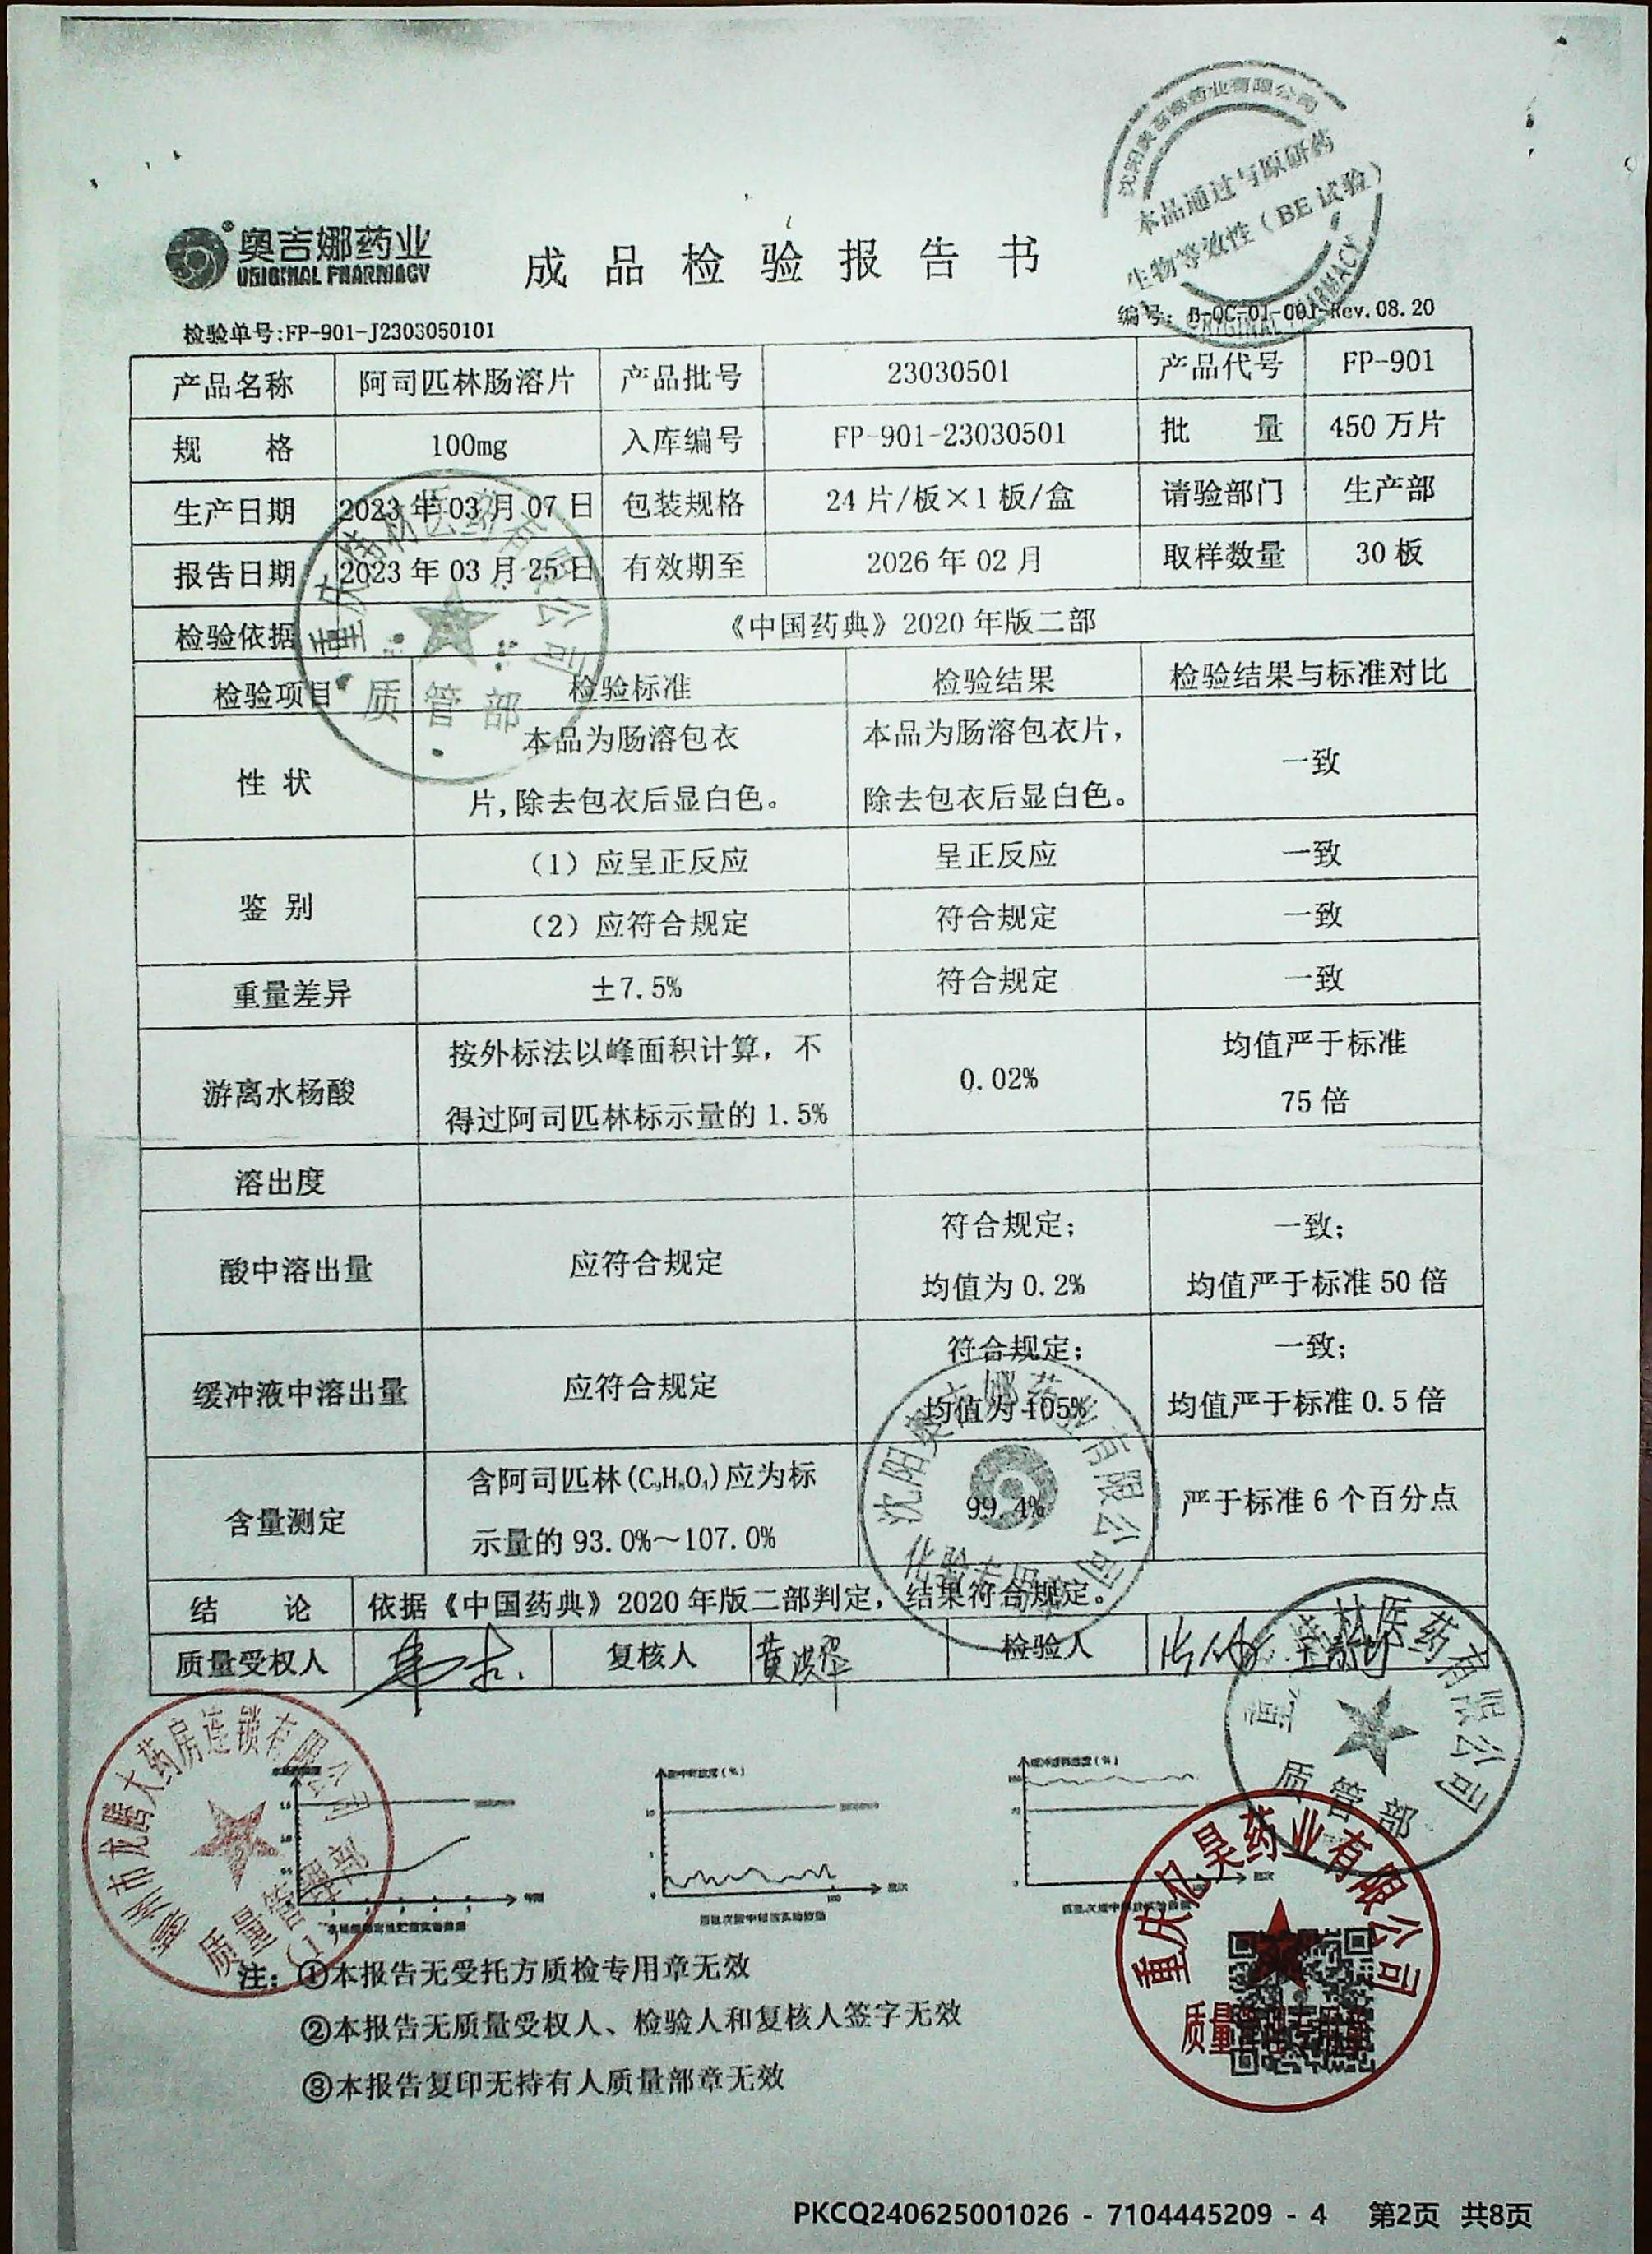 奥吉娜药业
ORIGINAL PHARMACY
成品检验报告书
本品通过与原研药
生物等效性（BE试验）
检验单号:FP-901-J2303050101
编号: B-QC-01-001-Rev.08.20
产品名称 阿司匹林肠溶片 产品批号 23030501 产品代号 FP-901
规 格 100mg 入库编号 FP-901-23030501 批 量 450万片
生产日期 2023年03月07日 包装规格 24片/板×1板/盒 请验部门 生产部
报告日期 2023年03月25日 有效期至 2026年02月 取样数量 30板
检验依据 《中国药典》2020年版二部
检验项目 检验标准 检验结果 检验结果与标准对比
性 状 本品为肠溶包衣 本品为肠溶包衣片, 一致
片,除去包衣后显白色。 除去包衣后显白色。
鉴 别 （1）应呈正反应 呈正反应 一致
（2）应符合规定 符合规定 一致
重量差异 ±7.5% 符合规定 一致
游离水杨酸 按外标法以峰面积计算，不 0.02% 均值严于标准
得过阿司匹林标示量的1.5% 75倍
溶出度
酸中溶出量 应符合规定 符合规定; 一致;
均值为0.2% 均值严于标准50倍
缓冲液中溶出量 应符合规定 符合规定; 一致;
均值为105% 均值严于标准0.5倍
含量测定 含阿司匹林(C₉H₈O₄)应为标 99.4% 严于标准6个百分点
示量的93.0%～107.0%
结 论 依据《中国药典》2020年版二部判定，结果符合规定。
质量受权人 复核人 检验人
沈阳奥吉娜药业有限公司
化验专用章
医药有限公司
质管部
市龙腾大药房连锁有限公司
质量管理部
重庆亿昊药业有限公司
注: ①本报告无受托方质检专用章无效
②本报告无质量受权人、检验人和复核人签字无效
③本报告复印无持有人质量部章无效
PKCQ240625001026 - 7104445209 - 4 第2页 共8页